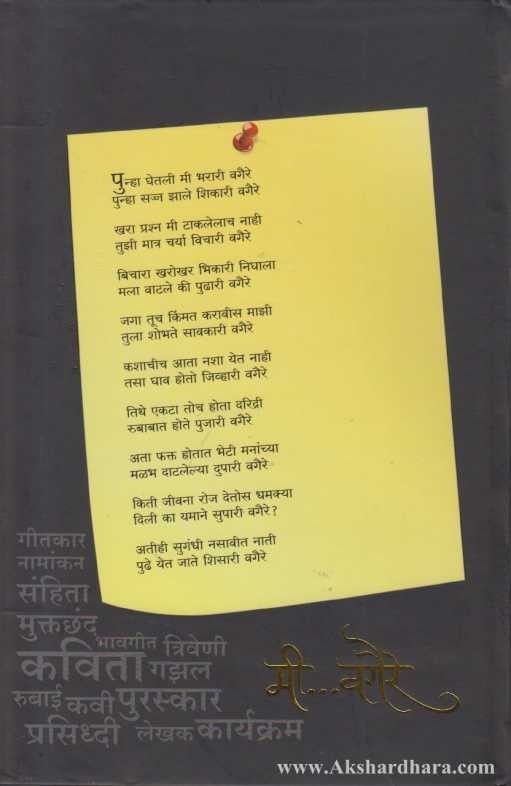 पुन्हा घेतली मी भरारी वगैरे
पुन्हा सज्ज झाले शिकारी वगैरे
खरा प्रश्न मी टाकलेलाच नाही
तुझी मात्र चर्या विचारी वगैरे
बिचारा खरोखर भिकारी निघाला
मला वाटले की पुढारी वगैरे
जगा तूच किंमत करावीस माझी
तुला शोभते सावकारी वगैरे
कशाचीच आता नशा येत नाही
तसा घाव होतो जिव्हारी वगैरे
तिथे एकटा तोच होता दरिद्री
रुबाबात होते पुजारी वगैरे
अता फक्त होतात भेटी मनांच्या
मळभ दाटलेल्या दुपारी वगैरे
किती जीवना रोज देतोस धमक्या
दिली का यमाने सुपारी वगैरे?
अतीही सुगंधी नसावीत नाती
पुढे येत जाते शिसारी वगैरे
गीतकार
नामांकन
संहिता
मुक्तछंद
भावगीत त्रिवेणी
कविता गझल
रुबाई कवी पुरस्कार
प्रसिध्दी लेखक कार्यक्रम
मी...वगैरे
www.Akshardhara.com